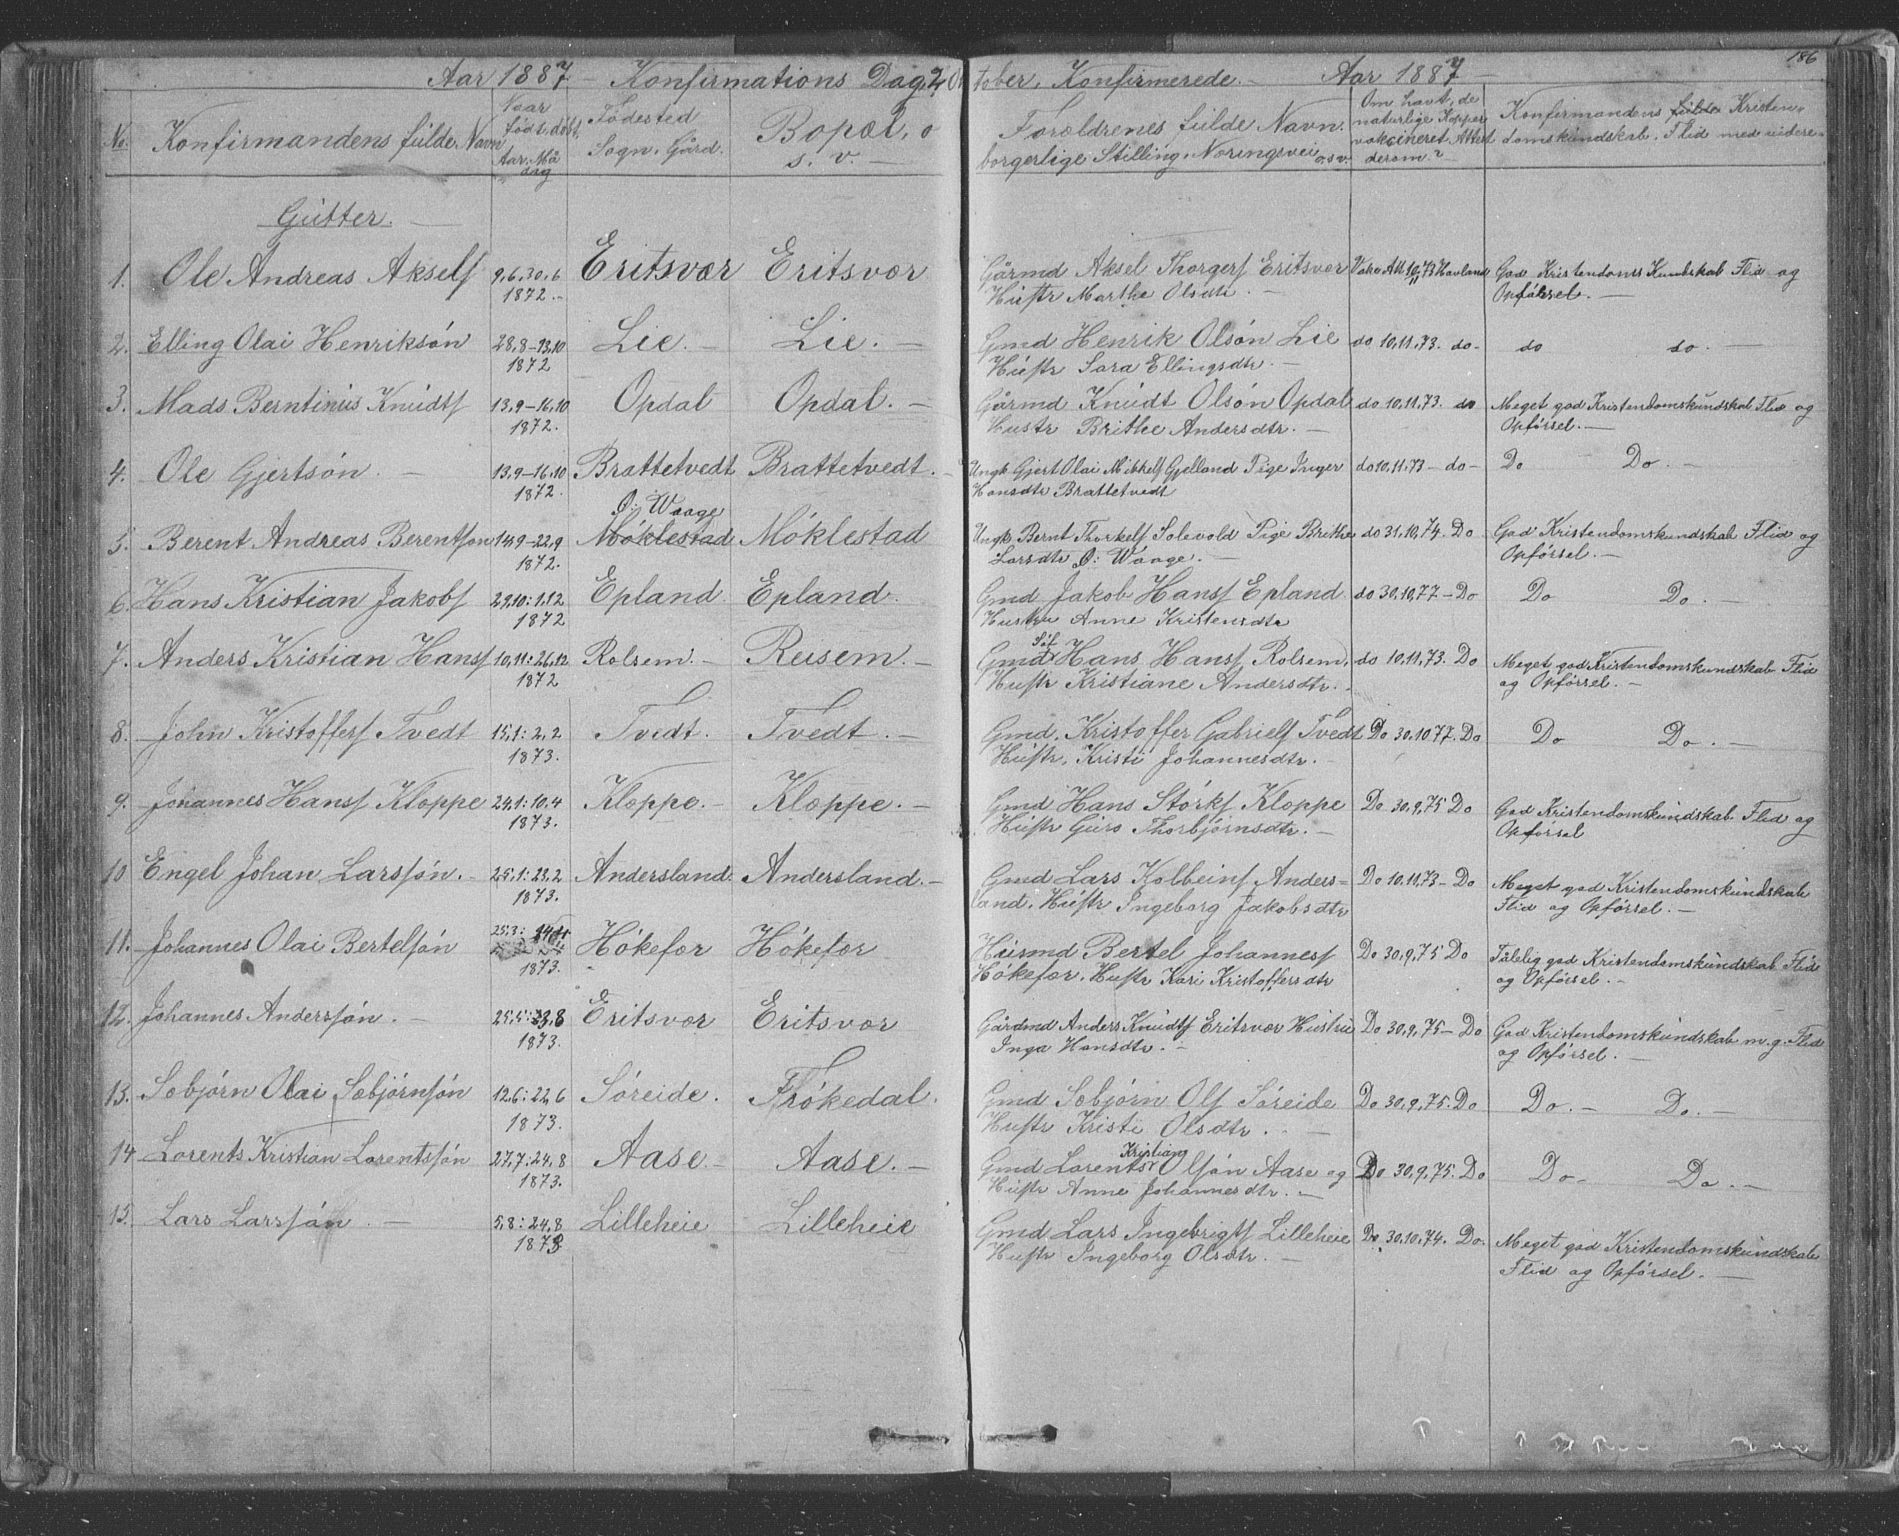 186
Aar 1887 – Konfirmations Dag 2 Oktober. Konfirmerede. – Aar 1887 –
No. Konfirmandens fulde Navn
Naar født, døbt, Aar. Maa dag
Fødested Sogn. Gård.
Bopæl, o s. v. –
Forældrenes fulde Navn. borgerlige Stilling. Næringsvei o s v.
Om havt, de naturlige Kopper vakcineret Attest derom?
Konfirmandens fulde Kristendomskundskab. Flid med videre
Gutter. –
1. Ole Andreas Akself 9,6,30,6 Eritsvær Eritsvær Gårmd Aksel Thorgers Eritsvær Vakc Att 10/11 73 Havland God Kristendoms Kundskab Flid og
1872. – Hustr Marthe Olsdtr – Opførsel. –
2. Elling Olai Henriksøn 28,8–13,10 Lie. – Lie. – Gmd Henrik Olsøn Lie do 10,11,73. do– do do. –
1872 Hustr Sara Ellingsdtr. –
3. Mads Berntinius Knudts 13,9–16,10 Opdal Opdal. – Gårmd Knudt Olsøn Opdal do 10,11,73. do Meget god Kristendomskundskab Flid og
1872. Hustr Brithe Andersdtr. – Opførsel. –
4. Ole Gjertsøn. – 13,9–16,10 Brattetvedt Brattetvedt. – Ungk Gjert Olai Mikkels Gjelland Pige Inger do 10,11,73 – do – Do Do. –
1872. Hansdtr Brattetvedt
Ø: Waage
5. Berent Andreas Berentsøn 14,9–22,9 Møklestad Møklestad Ungk Bernt Thorkels Solevold Pige Brithe do 31,10,74. Do God Kristendomskundskab Flid og
1872. Larsdtr Ø: Waage. – Opførsel. –
6. Hans Kristian Jakobs 29,10: 1,12 Epland Epland. Gmd Jakob Hanss Epland do 30,10,77 – Do Do Do. –
1872 Hustru Anne Kristensdtr
7. Anders Kristian Hanss 10,11:26,12 Rolsem. – Reisem. – Gmd Hans Hanss Rolsem, do 10,11,73. Do Meget god Kristendomskundskab Flid
1872 Hustr Kristiane Andersdtr. – og Opførsel. –
8. John Kristoffers Tvedt 15,1: 2,2 Tvedt. Tvedt. – Gmd. Kristoffer Gabriels Tvedt Do 30.10 77. Do Do Do. –
1873. Hustr, Kristi Johannesdtr. –
9. Johannes Hanss Kloppe 24,1: 10,4 Kloppe. – Kloppe. – Gmd Hans Størks Kloppe Do. 30,9,75 Do God Kristendomskundskab Flid og
1873. Hustr Guro Thorbjørnsdtr. – Opførsel
10 Engel Johan Larssøn. – 25,1: 23,2 Andersland. Andersland. – Gmd Lars Kolbeins Anders= Do 10,11,73– Do Meget god Kristendomskundskab
1873. land. Hustr Ingeborg Jakobsdtr Flid og Opførsel. –
11. Johannes Olai Bertelsøn 25,3: Høkefor Høkefor Husmd Bertel Johanness Do 30,9,75 Do Tålelig god Kristendomskundskab Flid
1873. Høkefor. Hustr Kari Kristoffersdtr og Opførsel. –
12. Johannes Anderssøn. – 25,5:23,8 Eritsvær Eritsvær Gårdmd Anders Knudts Eritsvær Hustru Do 30,9,75– Do God Kristendomskundskab m.g. Flid
1873. Inga Hansdtr. – og Opførsel. –
13. Sæbjørn Olai Sæbjørnsøn 12,6: 22,6 Søreide. Frøkedal. Gmd Sæbjørn Ols Søreide Do 30,9,75. Do Do. – Do. –
1873. Hustr Kristi Olsdtr. –
Kristian
14 Lorents Kristian Lorentssøn 27,7: 24,8 Aase. – Aase. – Gmd Lorents Olsøn Aase og Do 30,9,75. Do Do – Do. –
1873. Hustr Anne Johannesdtr. –
15. Lars Larssøn. – 5,8: 24,8 Lilleheie Lilleheie Gmd Lars Ingebrigts Lilleheie Do 30,10,74. Do. Meget god Kristendomskundskab
1873 Hustr Ingeborg Olsdtr. – Flid og Opførsel. –